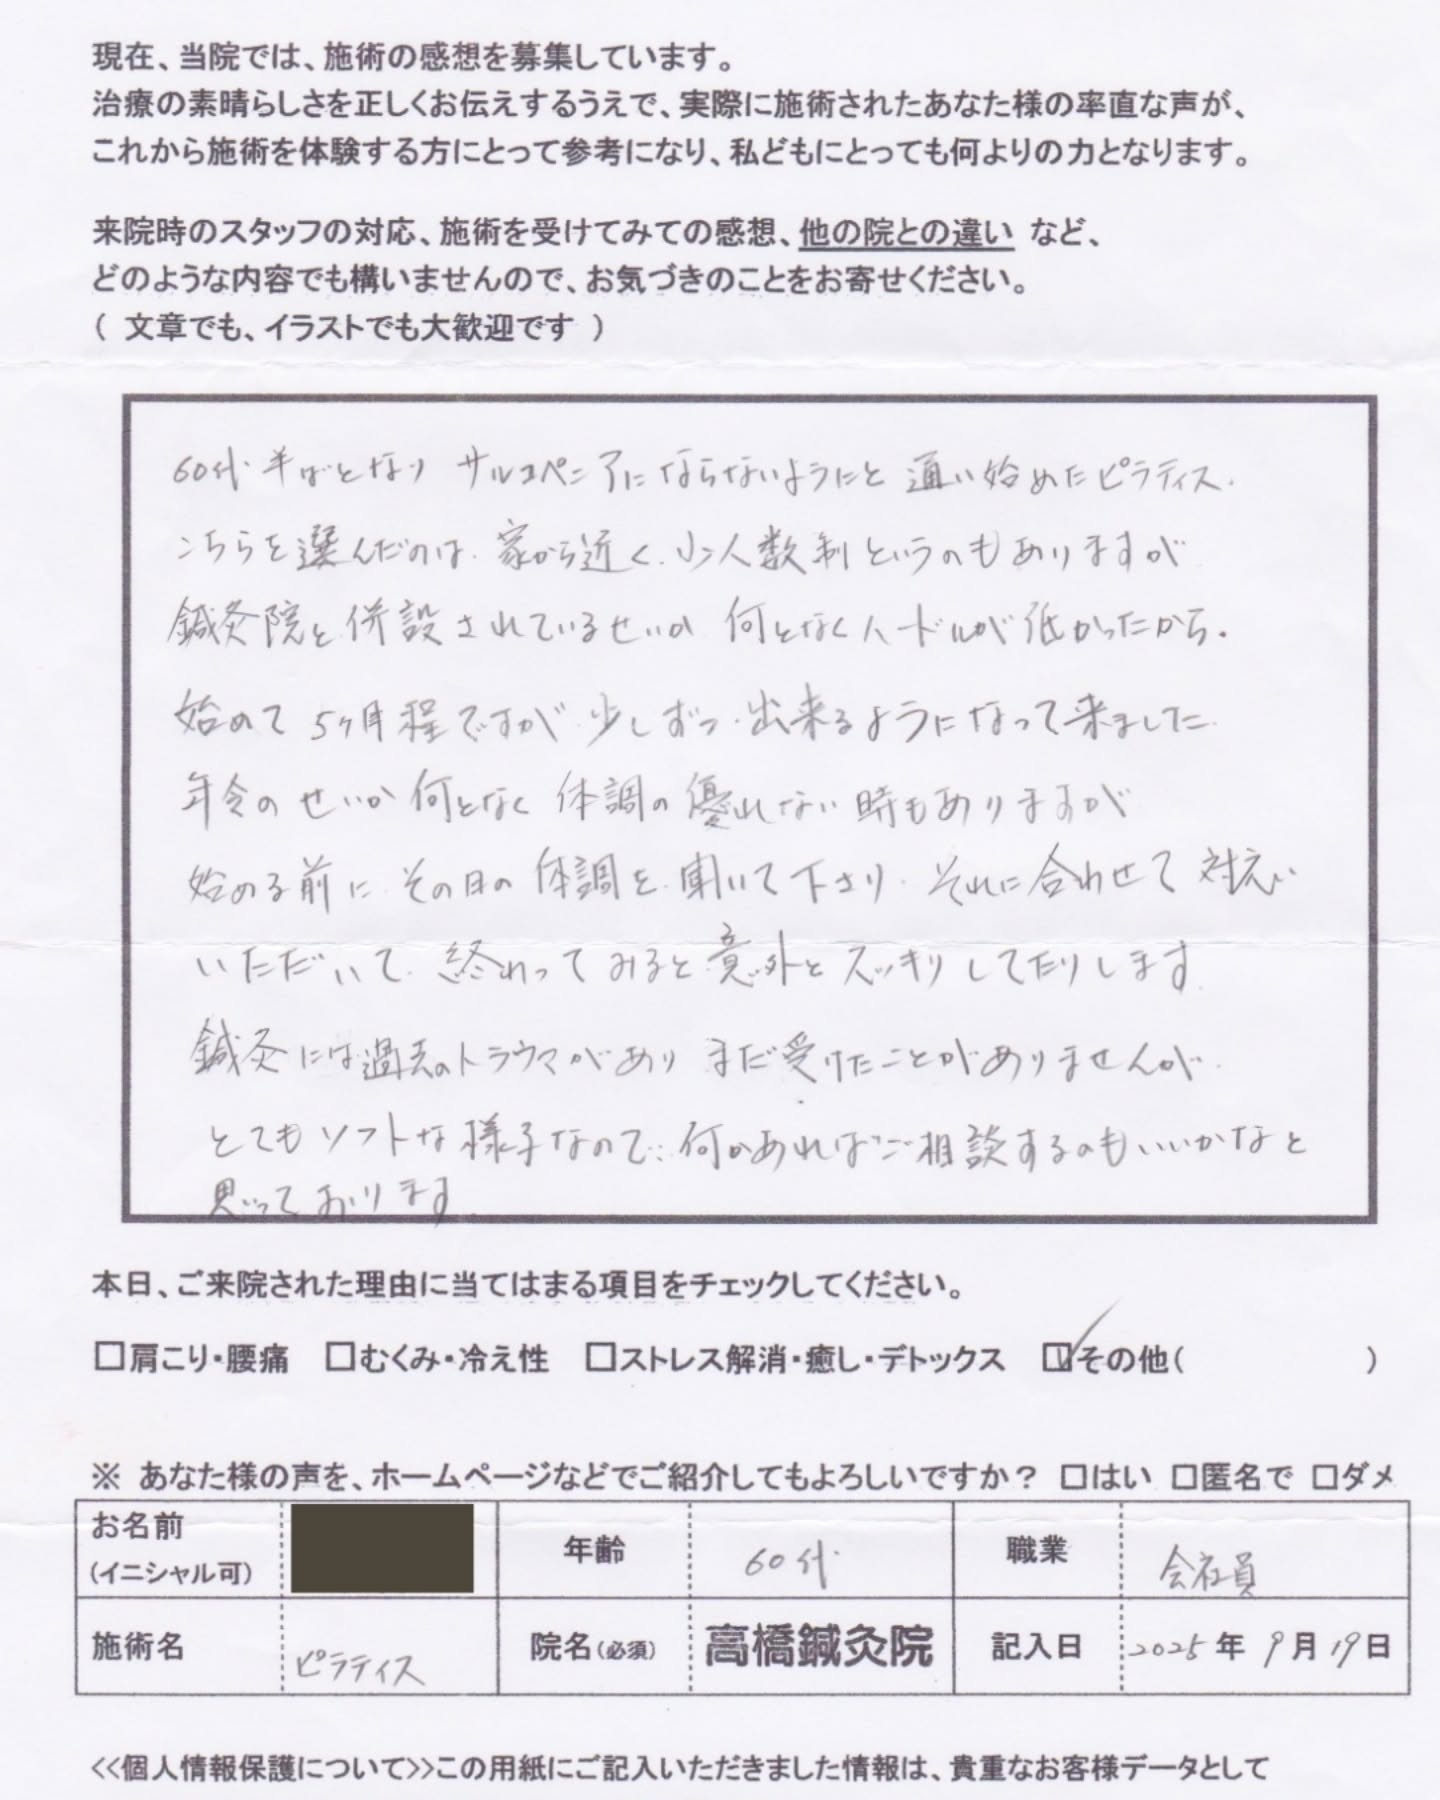 現在、当院では、施術の感想を募集しています。
治療の素晴らしさを正しくお伝えするうえで、実際に施術されたあなた様の率直な声が、
これから施術を体験する方にとって参考になり、私どもにとっても何よりの力となります。
来院時のスタッフの対応、施術を受けてみての感想、他の院との違い など、
どのような内容でも構いませんので、お気づきのことをお寄せください。
( 文章でも、イラストでも大歓迎です )
60代半ばとなり サルコペニアにならないようにと 通い始めたピラティス.
こちらを選んだのは、家から近く、少人数制というのもありますが
鍼灸院と併設されているせいか 何となくハードルが低かったから.
始めて5ヶ月程ですが、少しずつ出来るようになって来ました.
年令のせいか何となく体調の優れない時もありますが
始める前に、その日の体調を聞いて下さり、それに合わせて対応
いただいて、終わってみると意外とスッキリしてたりします.
鍼灸には過去のトラウマがあり まだ受けたことがありませんが、
とてもソフトな様子なので、何かあればご相談するのもいいかなと
思っております
本日、ご来院された理由に当てはまる項目をチェックしてください。
□肩こり・腰痛 □むくみ・冷え性 □ストレス解消・癒し・デトックス ☑その他( )
※ あなた様の声を、ホームページなどでご紹介してもよろしいですか? □はい □匿名で □ダメ
お名前 (イニシャル可) 年齢 60代 職業 会社員
施術名 ピラティス 院名(必須) 高橋鍼灸院 記入日 2025年 9月 19日
<<個人情報保護について>>この用紙にご記入いただきました情報は、貴重なお客様データとして